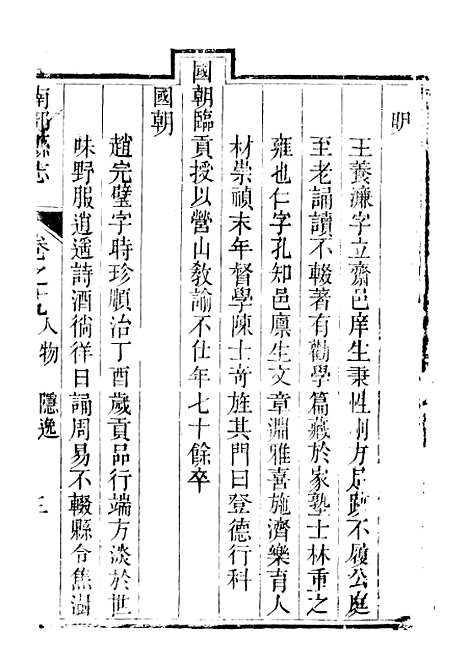 明
王養濂字立齋邑庠生秉性剛方足跡不履公庭
至老誦讀不輟著有勸學篇藏於家塾士林重之
雍也仁字孔知邑廩生文章淵雅喜施濟樂育人
材崇禎末年督學陳士奇旌其門曰登德行科
國朝臨貢授以營山教諭不仕年七十餘卒
國朝
趙完璧字時珍順治丁酉歲貢品行端方淡於世
味野服逍遥詩酒徜徉日誦周易不輟縣令焦
南部縣志 卷之十九 人物 隱逸 三